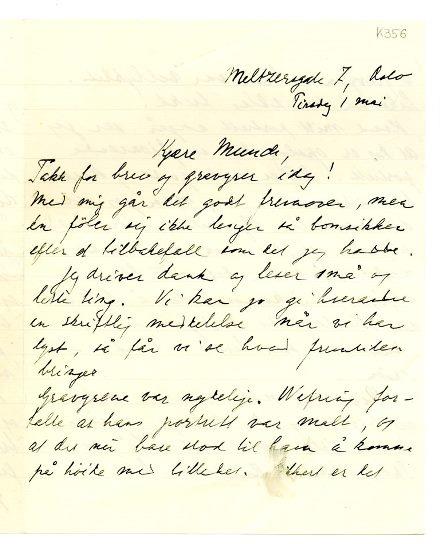 K356
Meltzersgade 7, Oslo
Tirsdag 1 mai
Kjære Munch,
Takk for brev og gravyrer idag!
Med mig går det godt fremover, men
en föler sig ikke lenger så bomsikker
efter et tilbakefall som det jeg hadde.
Jeg driver dank og leser små og
lette ting. Vi kan jo gi hverandre
en skriftlig meddelelse når vi har
lyst, så får vi se hvad fremtiden
bringer
Gravyrene var nydelige. Wefring for-
talte at hans portrett var malt, og
at det nu bare stod til ham å komme
på höide med billedet. er det